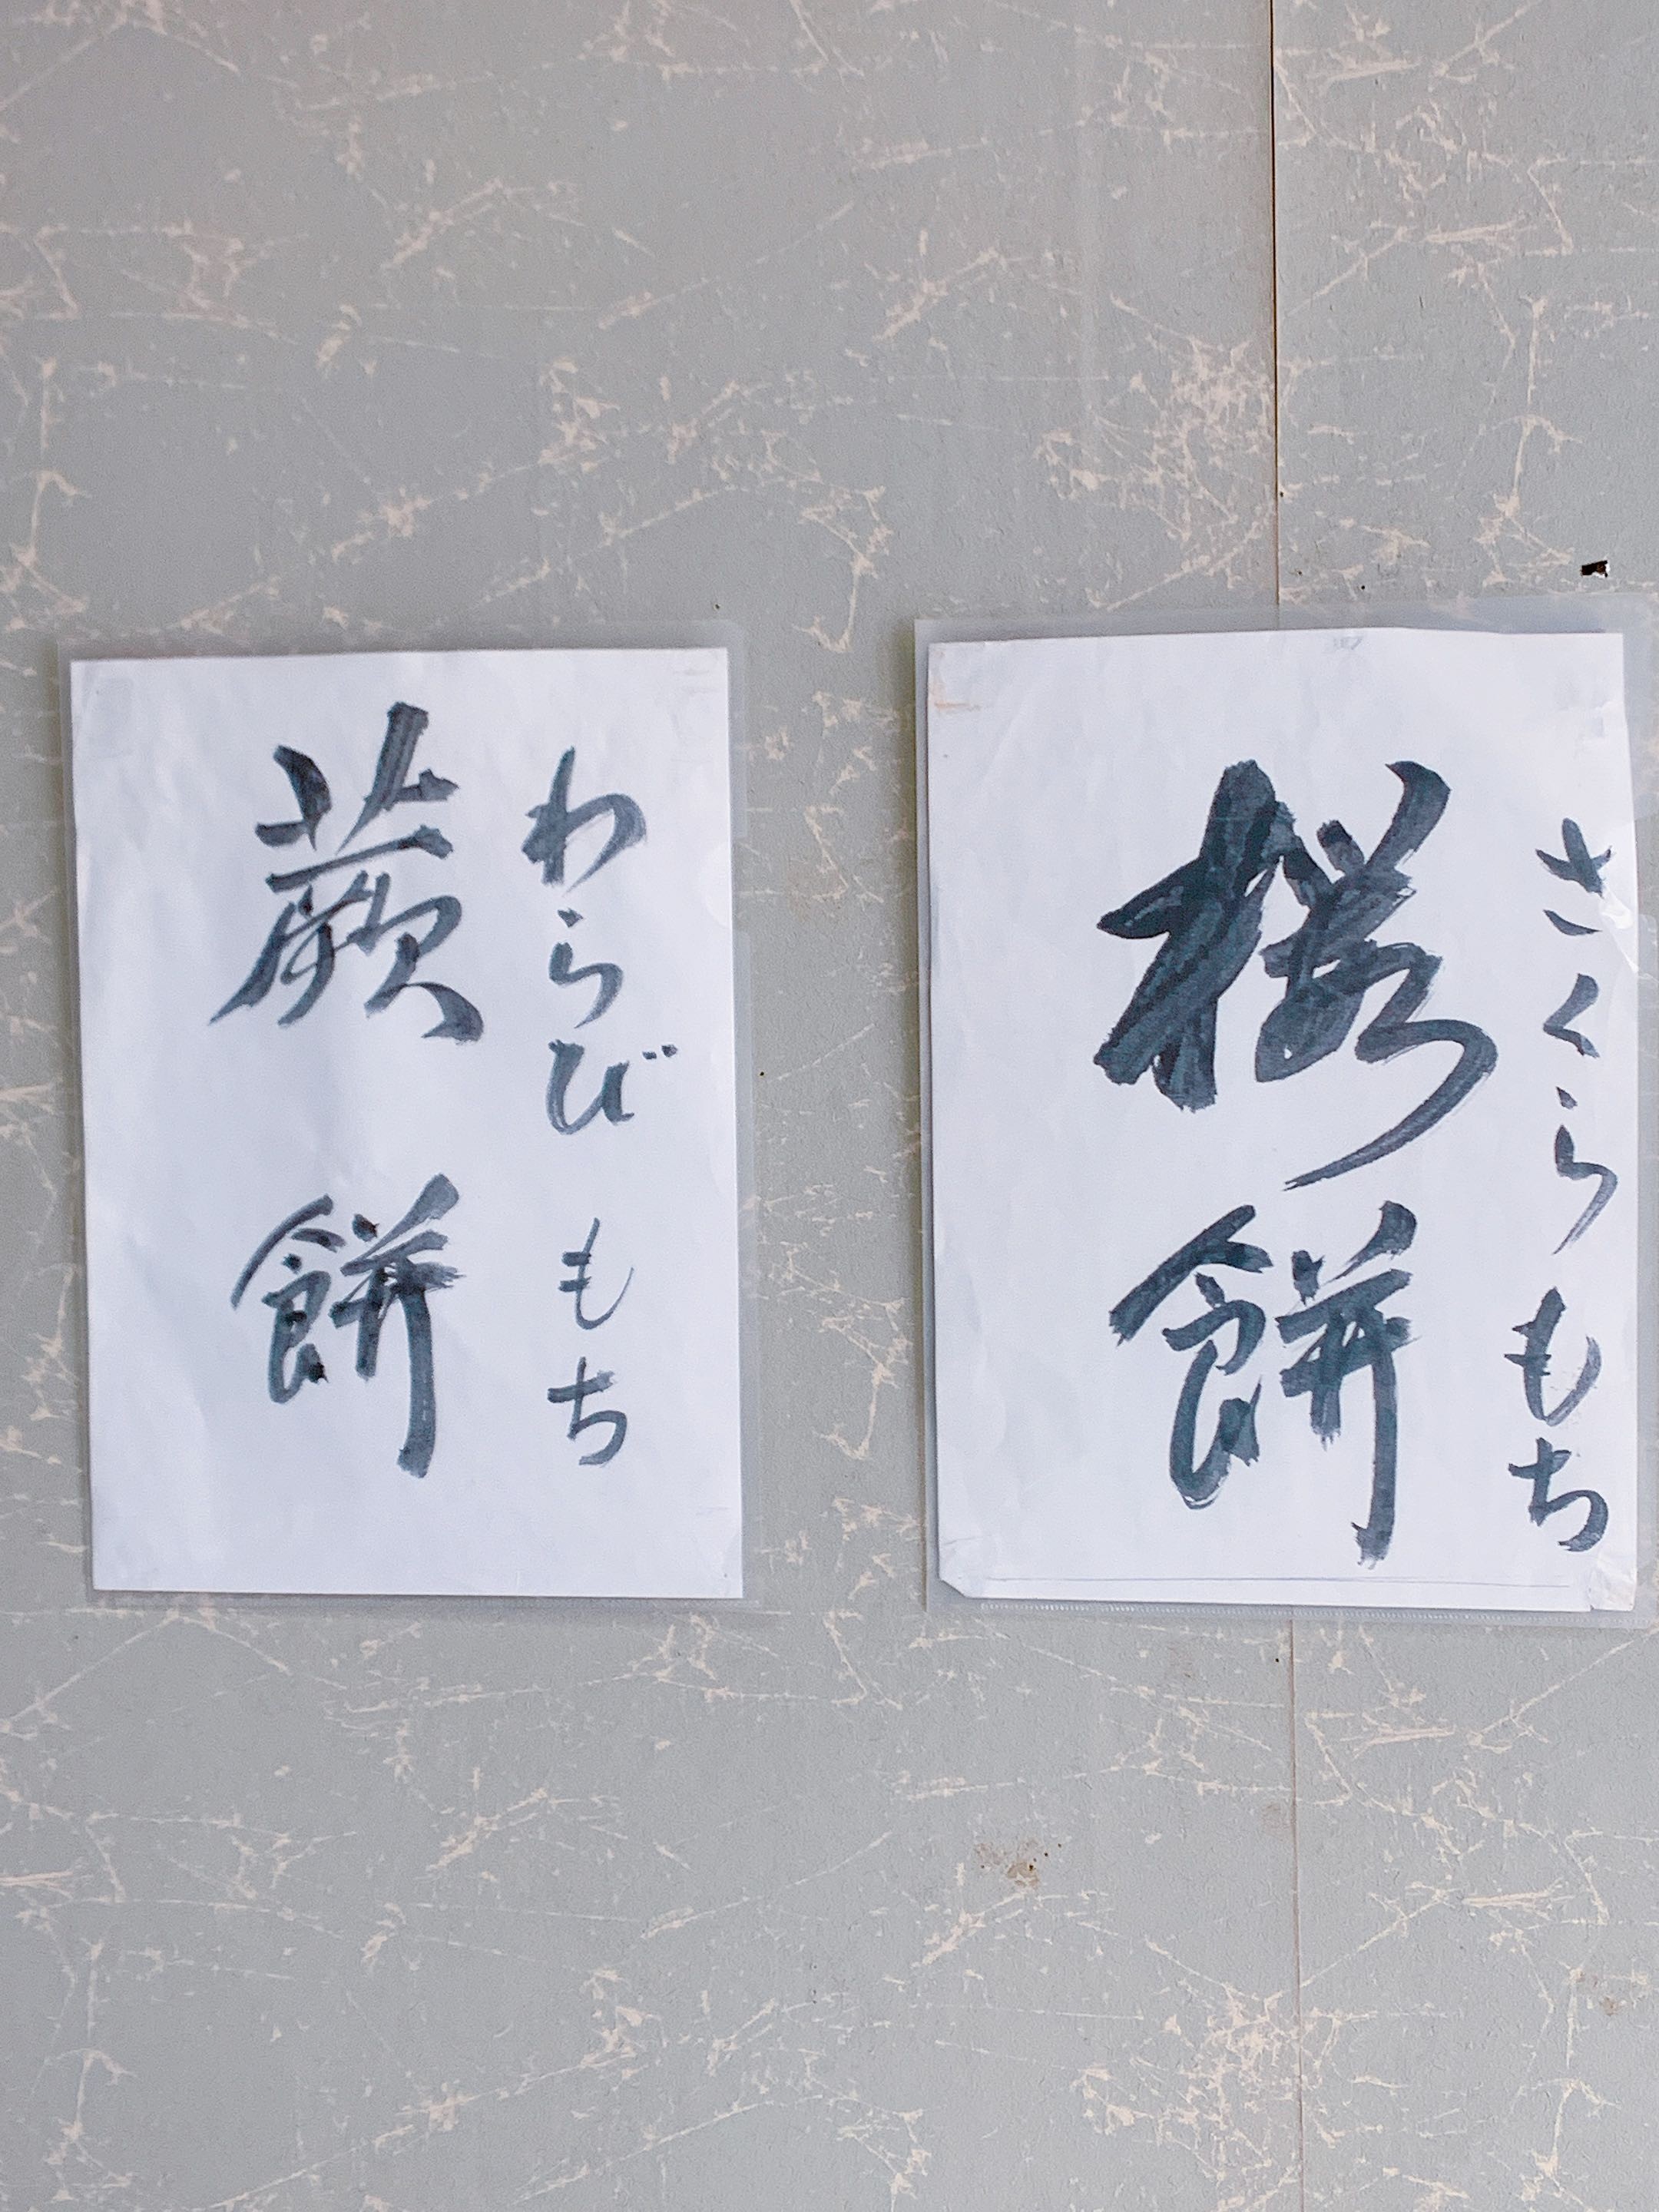 さくらもち
桜餅
わらびもち
蕨餅